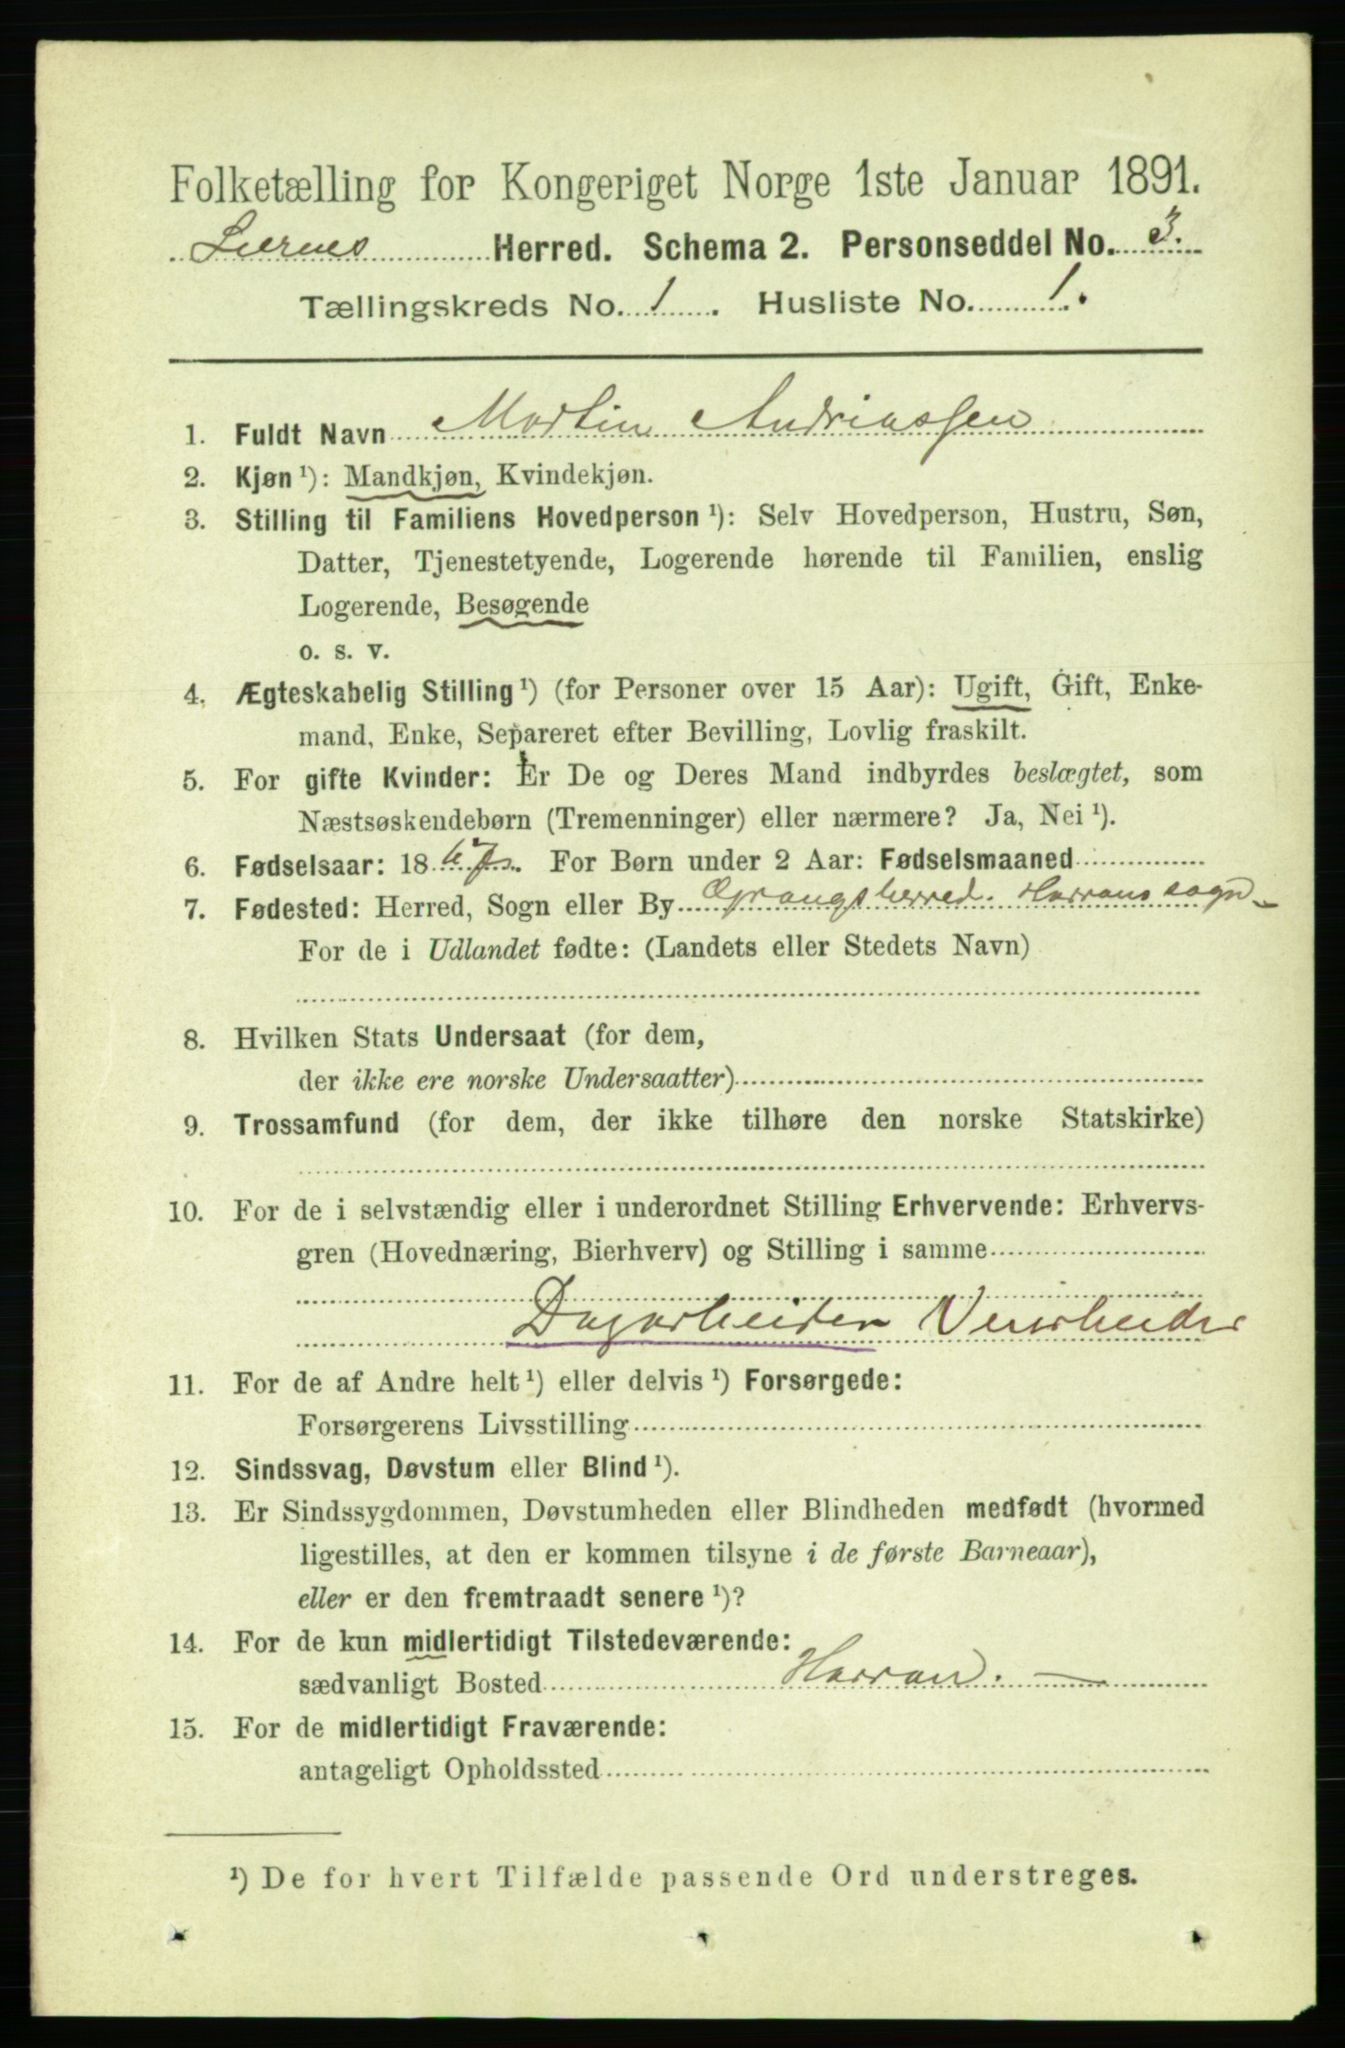 Folketælling for Kongeriget Norge 1ste Januar 1891.
Liernes Herred. Schema 2. Personseddel No. 3.
Tællingskreds No. 1. Husliste No. 1.
1. Fuldt Navn Martin Andriassen
2. Kjøn ¹): Mandkjøn, Kvindekjøn.
3. Stilling til Familiens Hovedperson ¹): Selv Hovedperson, Hustru, Søn,
Datter, Tjenestetyende, Logerende hørende til Familien, enslig
Logerende, Besøgende
o. s. v.
4. Ægteskabelig Stilling ¹) (for Personer over 15 Aar): Ugift, Gift, Enke-
mand, Enke, Separeret efter Bevilling, Lovlig fraskilt.
5. For gifte Kvinder: Er De og Deres Mand indbyrdes beslægtet, som
Næstsøskendebørn (Tremenninger) eller nærmere? Ja, Nei ¹).
6. Fødselsaar: 1867. For Børn under 2 Aar: Fødselsmaaned
7. Fødested: Herred, Sogn eller By Grongsherred. Harrans sogn
For de i Udlandet fødte: (Landets eller Stedets Navn)
8. Hvilken Stats Undersaat (for dem,
der ikke ere norske Undersaatter)
9. Trossamfund (for dem, der ikke tilhøre den norske Statskirke)
10. For de i selvstændig eller i underordnet Stilling Erhvervende: Erhvervs-
gren (Hovednæring, Bierhverv) og Stilling i samme
Dagarbeider Veiarbeider
11. For de af Andre helt ¹) eller delvis ¹) Forsørgede:
Forsørgerens Livsstilling
12. Sindssvag, Døvstum eller Blind ¹).
13. Er Sindssygdommen, Døvstumheden eller Blindheden medfødt (hvormed
ligestilles, at den er kommen tilsyne i de første Barneaar),
eller er den fremtraadt senere ¹)?
14. For de kun midlertidigt Tilstedeværende:
sædvanligt Bosted Harran. —
15. For de midlertidigt Fraværende:
antageligt Opholdssted
¹) De for hvert Tilfælde passende Ord understreges.